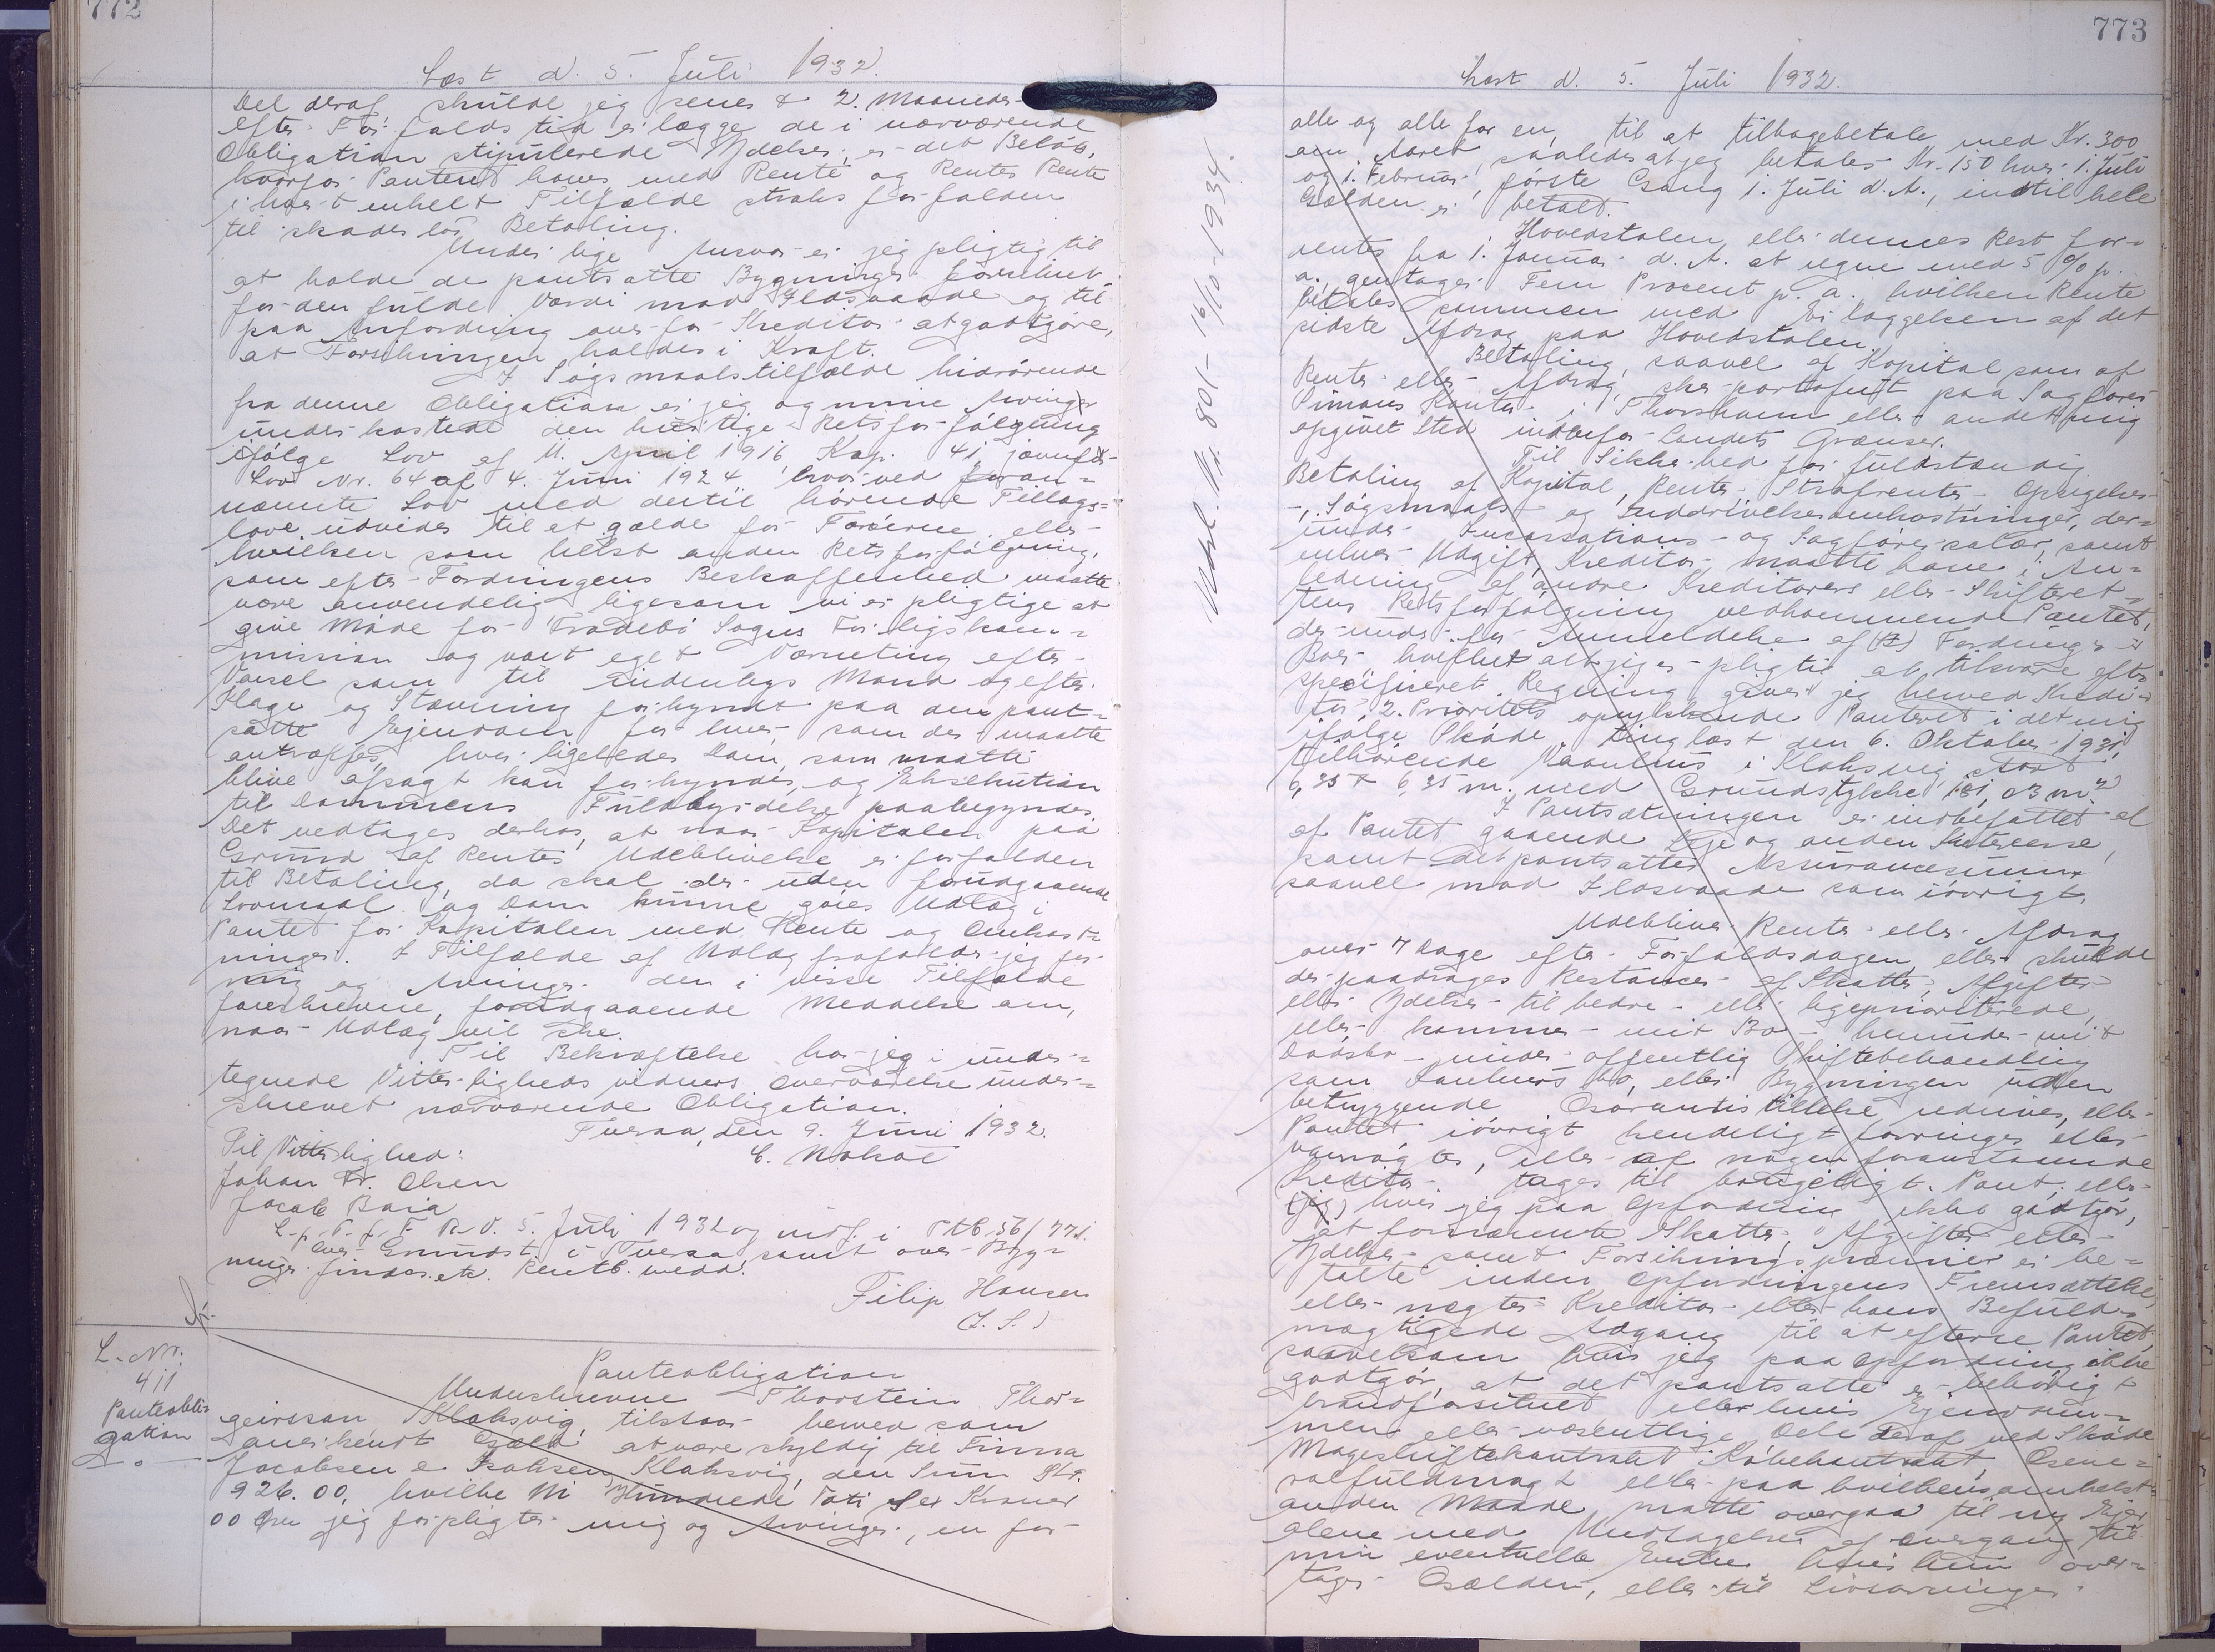 772
Læst d. 5. Juli 1932.
Del deraf skulde jeg senest 2. Maaneder
efter Forfaldstid erlægge de i nærværende
Obligation stipulerede Ydelser, er det Beløb,
hvorfor Panteret haves med Rente og Renters Rente
i hvert enkelt Tilfælde straks forfalden
til skadesløs Betaling.
Under lige Ansvar er jeg pligtig til
at holde de pantsatte Bygninger forsikret
for den fulde Værdi mod Ildsvaade og til
paa Anfordring overfor Kreditor at godtgøre,
at Forsikringen holdes i Kraft.
I Søgsmaalstilfælde hidrørende
fra denne Obligation er jeg og mine Arvinger
underkastede den hurtige Retsforfølgning
ifølge Lov af 11. April 1916 Kap. 41, jævnfør
Lov Nr. 64 af 4. Juni 1924 hvorved foran=
nævnte Lov med dertil hørende Tillægs=
love udvides til at gælde for Færøerne eller
hvilken som helst anden Retsforfølgning,
som efter Fordringens Beskaffenhed maatte
være anvendelig ligesom vi er pligtige at
give Møde for Frodebø Sogns Forligskom=
mission og vort eget Værneting efter
Varsel som til Indenbys Mand og efter
Klage og Stævning forkyndt paa den pant=
satte Ejendom for hver som der maatte
antræffes, hvor ligeledes Dom, som maatte
blive afsagt kan forkyndes, og Eksekution
til Dommens Fuldbyrdelse paabegyndes.
Det vedtages derhos, at naar Kapitalen paa
Grund af Rentes Udeblivelse er forfalden
til Betaling, da skal der uden forudgaaende
Lovmaal og Dom kunne gøres Udlæg i
Pantet for Kapitalen med Rente og Omkost=
ninger. I Tilfælde af Udlæg frafalder jeg for
mig og Arvinger den i visse Tilfælde
foreskrevne, forudgaaende Meddelelse om,
naar Udlæg vil ske.
Til Bekræftelse har jeg i under=
tegnede Vitterligheds vidners Overværelse under=
skrevet nærværende Obligation.
Tveraa, den 9. Juni 1932.
Til Vitterlighed:
Johan Fr. Olsen
Jacob
L. p. T. f. F. R. D. 5. Juli 1932 og indf. i Ptb. 56/771.
Over Grundst. i Tveraa samt over Byg=
ninger findes etc. Rentb. medd.
Filip Hansen
(L. S.)
L. Nr.
411
Panteobli=
gation
Panteobligation
Underskrevne Thorstein Thor=
geirsson Klaksvig, tilstaar herved som
anerkendt Gæld at være skyldig til Finna
Jacobsen e. Isaksen Klaksvig, den Sum Kr.
926.00, hvilke Ni Hundrede Toti Sex Kroner
00 Øre jeg forpligter mig og Arvinger, en for
773
Læst d. 5. Juli 1932.
Udsl. Nr. 801 - 16/10-1934.
alle og alle for en, til at tilbagebetale med Kr. 300
om Aaret, saaledes at jeg betaler Kr. 150 hver 1. Juli
og 1. Februar, første Gang 1. Juli d. A., indtil hele
Gælden er betalt.
Hovedstolen eller dennes Rest for=
rentes fra 1. Januar d. A. at regne med 5 % p.
a., gentager Fem Procent p. a. hvilken Rente
betales sammen med Erlæggelsen af det
sidste Afdrag paa Hovedstolen.
Betaling, saavel af Kapital som af
Rente eller Afdrag, sker portofrit paa Sagfører
Kontor i Thorshavn eller andet mig
opgivet Sted indenfor Landets Grænser.
Til Sikkerhed for fuldstændig
Betaling af Kapital, Renter, Strafrenter, Opsigelses
-, Søgsmaals- og Inddrivelsesomkostninger, der=
under Incassations- og Sagførersalær, samt
enhver Udgift, Kreditor maatte have i An=
ledning af andre Kreditorers eller Skifteret=
tens Retsforfølgning vedkommende Pantet,
derunder for Anmeldelse af Fordringer i
Boer, hvilket alt jeg er pligtig at tilsvare efter
specificeret Regning, giver jeg herved Kredi=
tor 2. Prioritets oprykkende Panteret i det mig
ifølge Skøde tinglæst den 6. Oktober 1931
tilhørende Vaanhus i Klaksvig, stort
6,35 x 6,35 m. med Grundstykke 181,03 m²
I Pantsætningen er indbefattet al
af Pantet gaaende Leje og anden Interesse,
samt det pantsattes Assurancesum,
saavel mod Ildsvaade som iøvrigt.
Udebliver Renter eller Afdrag
over 7 Dage efter Forfaldsdagen, eller skulde
der paadrages Restancer af Skatter, Afgifter
eller Ydelser til bedre- eller ligeprioriterede,
eller kommer mit Bo - herunder mit
Dødsbo - under offentlig Skiftebehandling
som Konkurs bo, eller Bygningen uden
betryggende Garantistillelse nedrives, eller
Pantet iøvrigt kendeligt forringes eller
vanrøgtes, eller af nogen foranstaaende
Kreditor tages til brugeligt Pant, eller
(jeg) hvis jeg paa Opfordring ikke godtgør,
at fornævnte Skatter, Afgifter eller
Ydelser samt Forsikringspræmier er be=
talte inden Opfordringens Fremsættelse,
eller nægter Kreditor eller hans Befuld=
mægtigede Adgang til at efterse Pantet,
saavelsom hvis jeg paa Opfordring ikke
godtgør, at det pantsatte er behørigt
brandforsikret eller hvis Ejendom=
men eller væsentlige Dele deraf ved Skøde
Mageskiftekontrakt Købekontrakt, Gene=
ralfuldmagt eller paa hvilkensomhelst
anden Maade maatte overgaa til ny Ejer
alene med Undtagelse af Overgang til
min eventuelle Enke hvis hun over=
tager Gælden, eller til Livsarvinger.